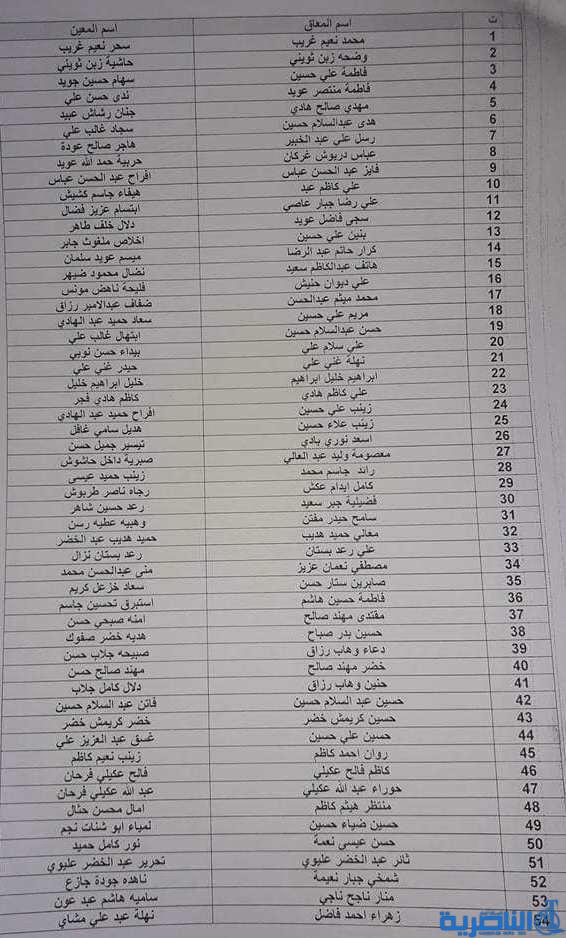 ت اسم المعاق اسم المعين
1 محمد نعيم غريب سحر نعيم غريب
2 وضحه زبن ثويني حاشية زبن ثويني
3 فاطمة علي حسين سهام حسين جويد
4 فاطمة منتصر عويد ندى حسن علي
5 مهدي صالح هادي جنان رشاش عبيد
6 هدى عبدالسلام حسين سجاد غالب علي
7 رسل علي عبد الخبير هاجر صالح عودة
8 عباس درويش غركان حربية حمد الله عويد
9 فايز عبد الحسن عباس افراح عبد الحسن عباس
10 علي كاظم عبد هيفاء جاسم كشيش
11 علي رضا جبار عاصي ابتسام عزيز فضال
12 سجى فاضل عويد دلال خلف طاهر
13 بنين علي حسين اخلاص ملغوث جابر
14 كرار حاتم عبد الرضا ميسم عويد سلمان
15 هاتف عبدالكاظم سعيد نضال محمود ضيهر
16 علي ديوان حنيش فليحة ناهض مونس
17 محمد ميثم عبدالحسن ضفاف عبدالامير رزاق
18 مريم علي حسين سعاد حميد عبد الهادي
19 حسن عبدالسلام حسين ابتهال غالب علي
20 علي سلام علي بيداء حسن نوبي
21 نهلة غني علي حيدر غني علي
22 ابراهيم خليل ابراهيم خليل ابراهيم خليل
23 علي كاظم هادي كاظم هادي فجر
24 زينب علي حسين افراح حميد عبد الهادي
25 زينب علاء حسين هديل سامي غافل
26 اسعد نوري بادي تيسير جميل حسن
27 معصومة وليد عبد العالي صبرية داخل حاشوش
28 رائد جاسم محمد زينب حميد عيسى
29 كامل ايدام عكش رجاه ناصر طربوش
30 فضيلية جبر سعيد رعد حسين شاهر
31 سامح حيدر مفتن وهبيه عطيه رسن
32 معالي حميد هديب حميد هديب عبد الخضر
33 علي رعد بستان رعد بستان نزال
34 مصطفي نعمان عزيز منى عبدالحسن محمد
35 صابرين ستار حسن سعاد خزعل كريم
36 فاطمة حسين هاشم استبرق تحسين جاسم
37 مقتدى مهند صالح امنه صبحي حسن
38 حسين بدر صباح هديه خضر صفوك
39 دعاء وهاب رزاق صبيحه جلاب حسن
40 خضر مهند صالح مهند صالح حسن
41 حنين وهاب رزاق دلال كامل جلاب
42 حسين عبد السلام حسين فاتن عبد السلام حسين
43 حسين كريمش خضر خضر كريمش خضر
44 حسين علي حسين غسق عبد العزيز علي
45 روان احمد كاظم زينب نعيم كاظم
46 كاظم فالح عكيلي فالح عكيلي فرحان
47 حوراء عبد الله عكيلي عبد الله عكيلي فرحان
48 منتظر هيثم كاظم امال محسن حثال
49 حسين ضياء حسين لمياء ابو شنات نجم
50 حسن عيسى نعمة نور كامل حميد
51 ثائر عبد الخضر عليوي تحرير عبد الخضر عليوي
52 شمخي جبار نعيمة ناهده جودة جازع
53 منار ناجح ناجي ساميه هاشم عبد عون
54 زهراء احمد فاضل نهلة عبد علي مشاي
الناصرية